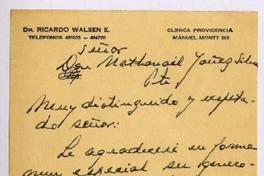 DR. RICARDO WALSEN E.
CLINICA PROVIDENCIA
TELEFONOS
MANUEL MONTT 303
Señor
Don Nathanael Yañez Silva
Pte
Muy distinguido y respeta-
do señor:
Le agradeceré en forma
muy especial su genero-